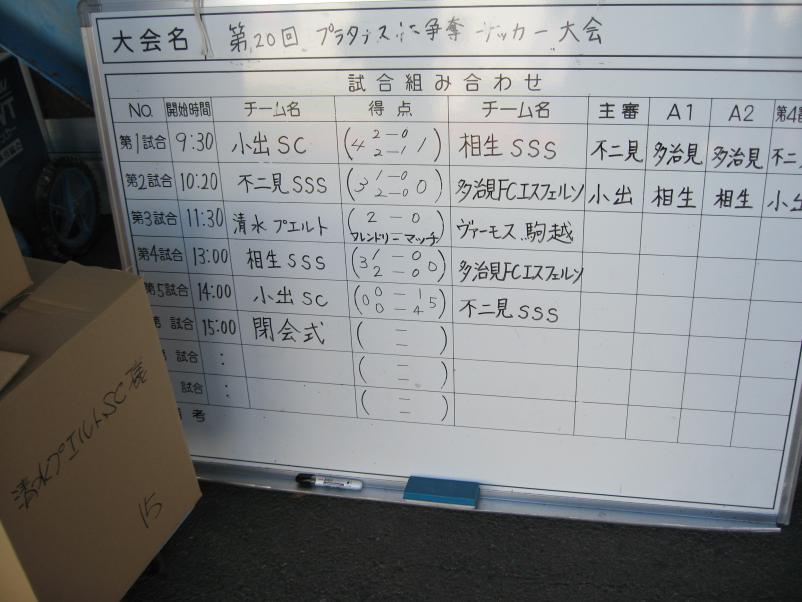 大会名 第20回 プラタナス杯争奪サッカー大会
試合組み合わせ
NO. 開始時間 チーム名 得点 チーム名 主審 A1 A2 第4
第1試合 9:30 小出SC (4 2-0 2-1 1) 相生SSS 不二見 多治見 多治見 不二
第2試合 10:20 不二見SSS (3 1-0 2-0 0) 多治見FCエスフェルソ 小出 相生 相生 小出
第3試合 11:30 清水プエルト (2-0 フレンドリーマッチ) ヴァーモス駒越
第4試合 13:00 相生SSS (3 1-0 2-0 0) 多治見FCエスフェルソ
第5試合 14:00 小出SC (0 0-1 0-4 5) 不二見SSS
試合 15:00 閉会式 ( - - )
試合 : ( - - )
試合 : ( - - )
考
清水プエルトSC様
15